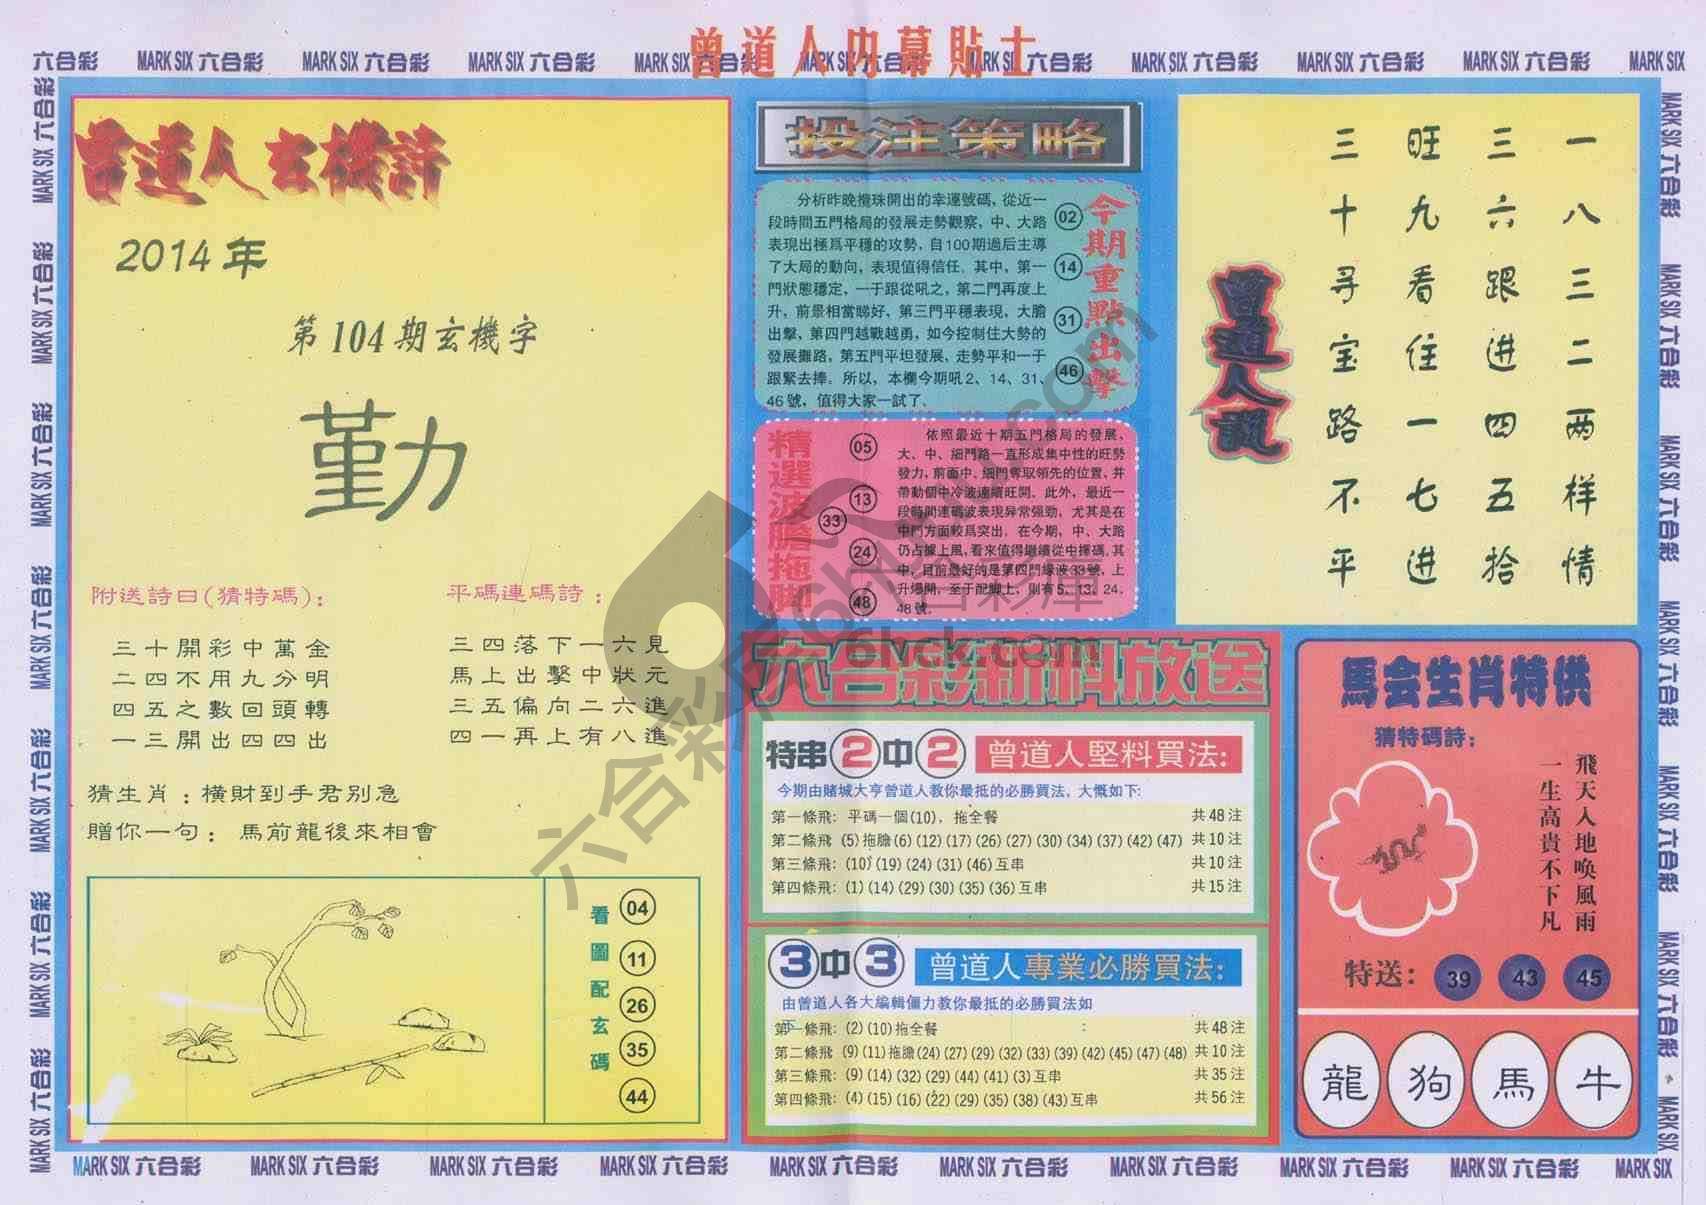 曾道人內幕貼士
六合彩 MARK SIX 六合彩 MARK SIX 六合彩 MARK SIX 六合彩 MARK SIX 六合彩 MARK SIX 六合彩 MARK SIX 六合彩 MARK SIX 六合彩 MARK SIX 六合彩 MARK SIX 六合彩 MARK SIX
曾道人玄機詩
2014年
第104期玄機字
勤
附送詩曰(猜特碼):
三十開彩中萬金
二四不用九分明
四五之數回頭轉
一三開出四四出
平碼連碼詩:
三四落下一六見
馬上出擊中狀元
三五偏向二六進
四一再上有八進
猜生肖:橫財到手君別急
贈你一句: 馬前龍後來相會
看圖配玄碼
04
11
26
35
44
投注策略
分析昨晚攪珠開出的幸運號碼,從近一
段時間五門格局的發展走勢觀察,中、大路
表現出極爲平穩的攻勢,自100期過后主導
了大局的動向,表現值得信任.其中,第一
門狀態穩定,一于跟從吼之,第二門再度上
升,前景相當睇好,第三門平穩表現,大膽
出擊,第四門越戰越勇,如今控制住大勢的
發展攤路,第五門平坦發展,走勢平和一于
跟緊去捧。所以,本欄今期吼2、14、31、
46號,值得大家一試了.
今期重點出擊
02
14
31
46
精選波膽拖脚
05
13
33
24
48
依照最近十期五門格局的發展,
大、中、細門路一直形成集中性的旺勢
發力,前面中、細門奪取領先的位置,并
帶動個中冷波連續旺開。此外,最近一
段時間連碼波表現异常强勁,尤其是在
中門方面較爲突出,在今期,中、大路
仍占據上風,看來值得繼續從中揮碼,其
中,目前最好的是第四門緑波33號,上
升爆開,至于配脚上,則有5、13、24、
48號.
六合彩新料放送
特串2中2 曾道人堅料買法:
今期由賭城大亨曾道人教你最抵的必勝買法,大慨如下:
第一條飛: 平碼一個(10),拖全餐 共48注
第二條飛 (5)拖膽(6)(12)(17)(26)(27)(30)(34)(37)(42)(47) 共10注
第三條飛:(10)(19)(24)(31)(46)互串 共10注
第四條飛:(1)(14)(29)(30)(35)(36)互串 共15注
3中3 曾道人專業必勝買法:
由曾道人各大編輯僵力教你最抵的必勝買法如
下 :
第一條飛:(2)(10)拖全餐 共48注
第二條飛 (9)(11)拖膽(24)(27)(29)(32)(33)(39)(42)(45)(47)(48) 共10注
第三條飛:(9)(14)(32)(29)(44)(41)(3)互串 共35注
第四條飛:(4)(15)(16)(22)(29)(35)(38)(43)互串 共56注
曾道人說
一八三二两样情
三六跟进四五拾
旺九看住一七进
三十寻宝路不平
馬会生肖特供
猜特碼詩:
飛天入地喚風雨
一生高貴不下凡
特送: 39 43 45
龍 狗 馬 牛
MARK SIX 六合彩 MARK SIX 六合彩 MARK SIX 六合彩 MARK SIX 六合彩 MARK SIX 六合彩 MARK SIX 六合彩 MARK SIX 六合彩 MARK SIX 六合彩 MARK SIX 六合彩 MARK SIX
六合彩库 6hck.com
六合彩庫
6hck.com